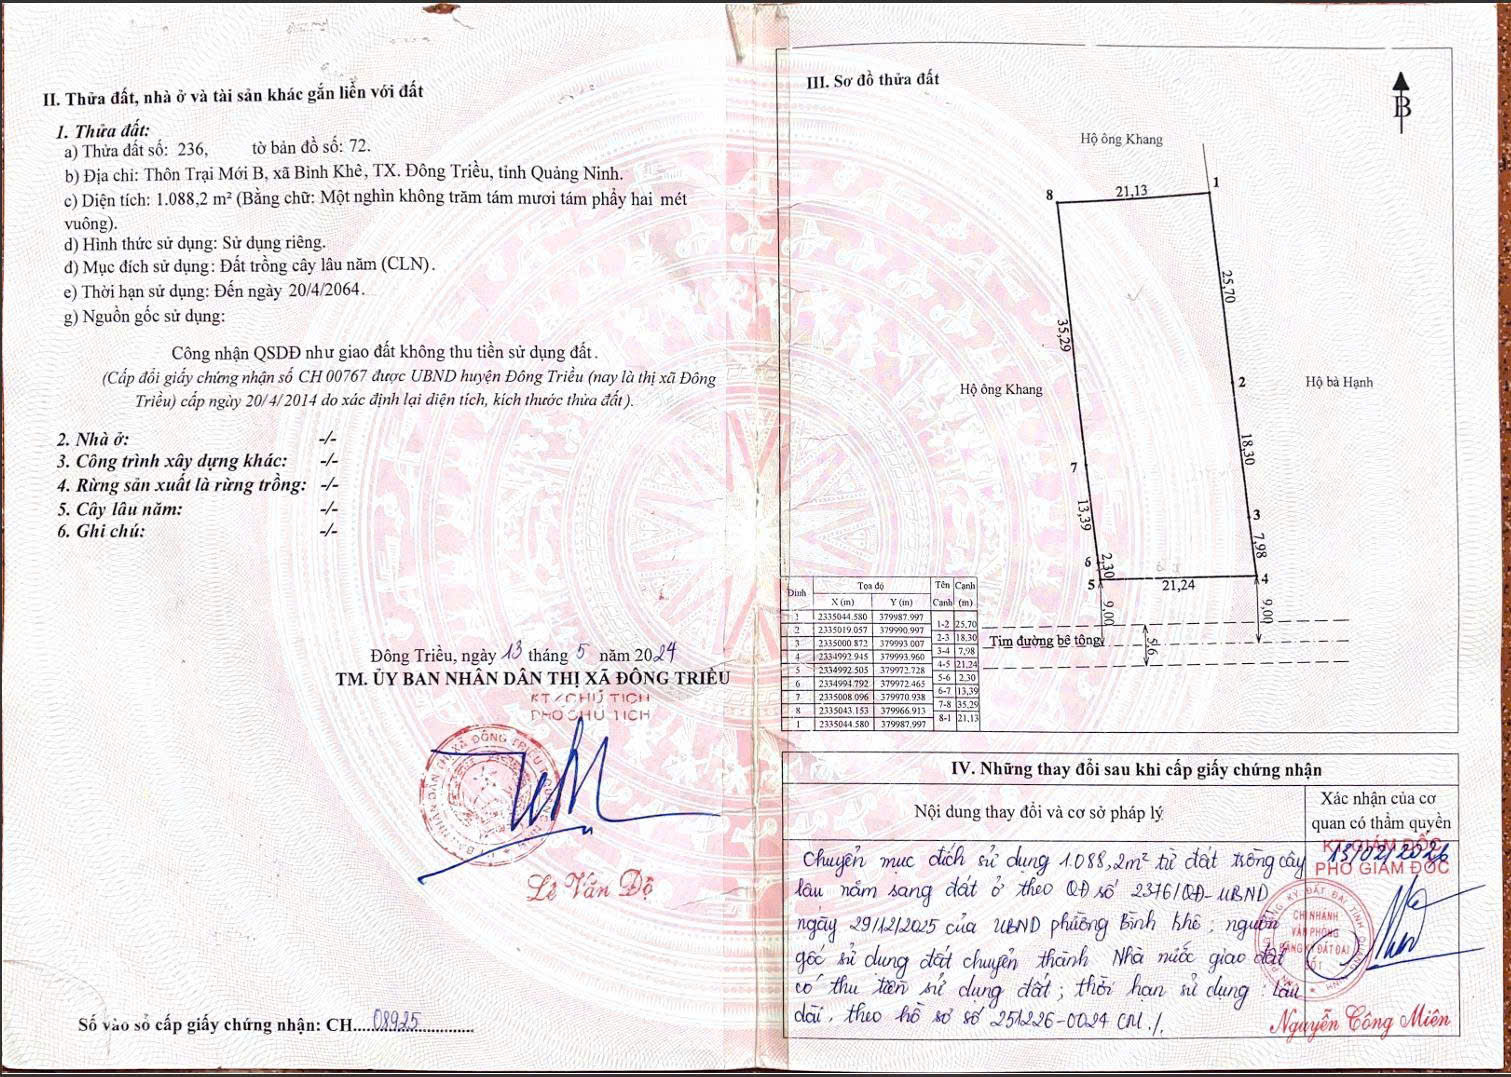 II. Thửa đất, nhà ở và tài sản khác gắn liền với đất
1. Thửa đất:
a) Thửa đất số: 236, tờ bản đồ số: 72.
b) Địa chỉ: Thôn Trại Mới B, xã Bình Khê, TX. Đông Triều, tỉnh Quảng Ninh.
c) Diện tích: 1.088,2 m² (Bằng chữ: Một nghìn không trăm tám mươi tám phẩy hai mét
vuông).
d) Hình thức sử dụng: Sử dụng riêng.
đ) Mục đích sử dụng: Đất trồng cây lâu năm (CLN).
e) Thời hạn sử dụng: Đến ngày 20/4/2064.
g) Nguồn gốc sử dụng:
Công nhận QSDĐ như giao đất không thu tiền sử dụng đất.
(Cấp đổi giấy chứng nhận số CH 00767 được UBND huyện Đông Triều (nay là thị xã Đông
Triều) cấp ngày 20/4/2014 do xác định lại diện tích, kích thước thửa đất).
2. Nhà ở: -/-
3. Công trình xây dựng khác: -/-
4. Rừng sản xuất là rừng trồng: -/-
5. Cây lâu năm: -/-
6. Ghi chú: -/-
Đông Triều, ngày 13 tháng 5 năm 2024
TM. ỦY BAN NHÂN DÂN THỊ XÃ ĐÔNG TRIỀU
KT/CHỦ TỊCH
PHÓ CHỦ TỊCH
Lê Văn Độ
Số vào sổ cấp giấy chứng nhận: CH....08925
III. Sơ đồ thửa đất
B
Hộ ông Khang
8 21,13 1
25,70
35,29
2
Hộ ông Khang
Hộ bà Hạnh
18,30
7
13,39
3
7,98
6 2,30
5 21,24 4
9,00 9,00
Tim đường bê tông
5,6
Đỉnh Tọa độ Tên Cạnh
X (m) Y (m) Cạnh (m)
1 2335044.580 379987.997
1-2 25,70
2 2335019.057 379990.997
2-3 18.30
3 2335000.872 379993.007
3-4 7,98
4 2334992.945 379993.960
4-5 21,24
5 2334992.505 379972.728
5-6 2.30
6 2334994.792 379972.465
6-7 13,39
7 2335008.096 379970.938
7-8 35,29
8 2335043.153 379966.913
8-1 21,13
1 2335044.580 379987.997
IV. Những thay đổi sau khi cấp giấy chứng nhận
Nội dung thay đổi và cơ sở pháp lý
Xác nhận của cơ
quan có thẩm quyền
Chuyển mục đích sử dụng 1.088,2m² từ đất trồng cây
lâu năm sang đất ở theo QĐ số 2376/QĐ-UBND
ngày 29/12/2025 của UBND phường Bình Khê; nguồn
gốc sử dụng đất chuyển thành Nhà nước giao đất
có thu tiền sử dụng đất; thời hạn sử dụng: Lâu
dài, theo hồ sơ số 251226-0024 CM./.
13/02/2026
KT.GIÁM ĐỐC
PHÓ GIÁM ĐỐC
CHI NHÁNH
VĂN PHÒNG
ĐĂNG KÝ ĐẤT ĐAI
Nguyễn Công Miên